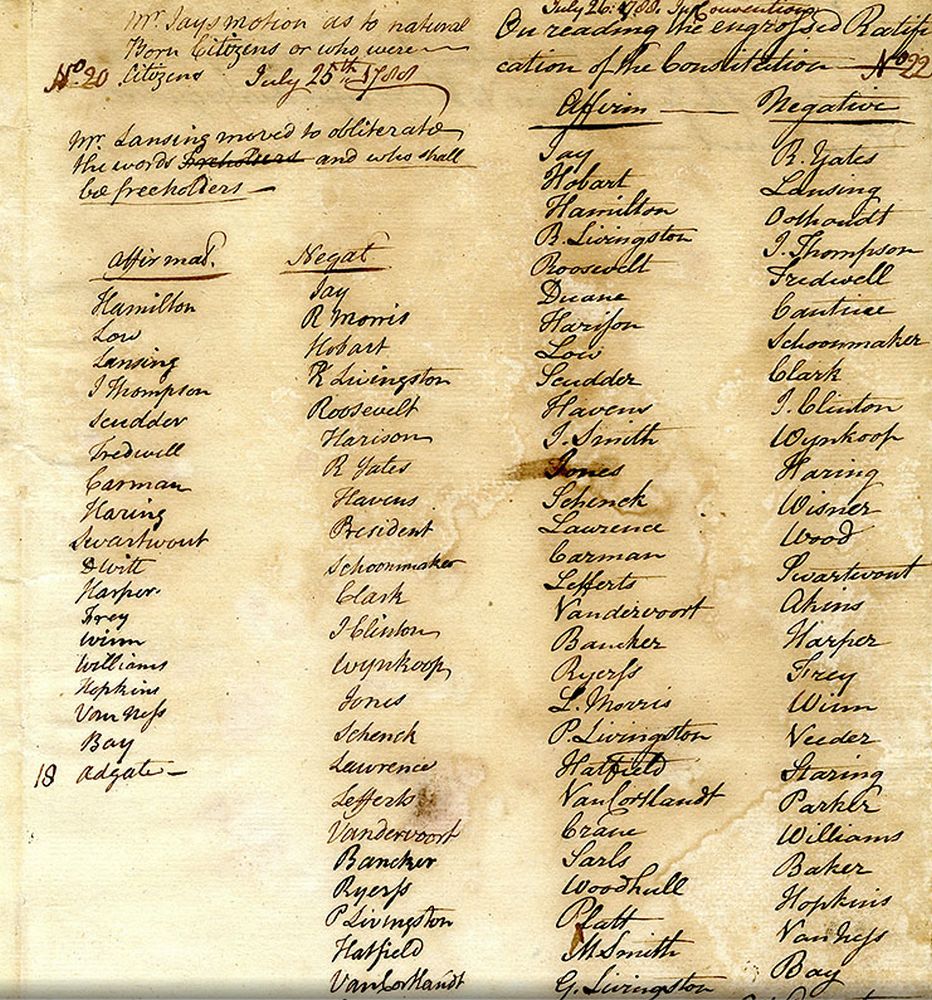 Mr. Jays motion as to natural
Born Citizens or who were
No. 20 Citizens July 25th 1788
Mr. Lansing moved to obliterate
the words Freeholders and who shall
be freeholders —
Affirmat.
Hamilton
Low
Lansing
I Thompson
Scudder
Tredwell
Carman
Haring
Swartwout
DWitt
Harper
Frey
Winn
Williams
Hopkins
Van Ness
Bay
18 Adgate —
Negat
Jay
R Morris
Hobart
R Livingston
Roosevelt
Harison
R Yates
Havens
President
Schoonmaker
Clark
J Clinton
Wynkoop
Jones
Schenck
Lawrence
Lefferts
Vandervoort
Bancker
Ryerss
P Livingston
Hatfield
Van Cortlandt
July 26: 1788. In Convention
On reading the engrossed Ratifi
cation of the Constitution — No 22
Affirm
Jay
Hobart
Hamilton
R. Livingston
Roosevelt
Duane
Harison
Low
Scudder
Havens
J. Smith
Jones
Schenck
Lawrence
Carman
Lefferts
Vandervoort
Bancker
Ryerss
L. Morris
P. Livingston
Hatfield
Van Cortlandt
Crane
Sarls
Woodhull
Platt
M Smith
G. Livingston
Negative
R. Yates
Lansing
Oothoudt
I. Thompson
Tredwell
Cantine
Schoonmaker
Clark
J. Clinton
Wynkoop
Haring
Wisner
Wood
Swartwout
Akins
Harper
Frey
Winn
Veeder
Staring
Parker
Williams
Baker
Hopkins
Van Ness
Bay